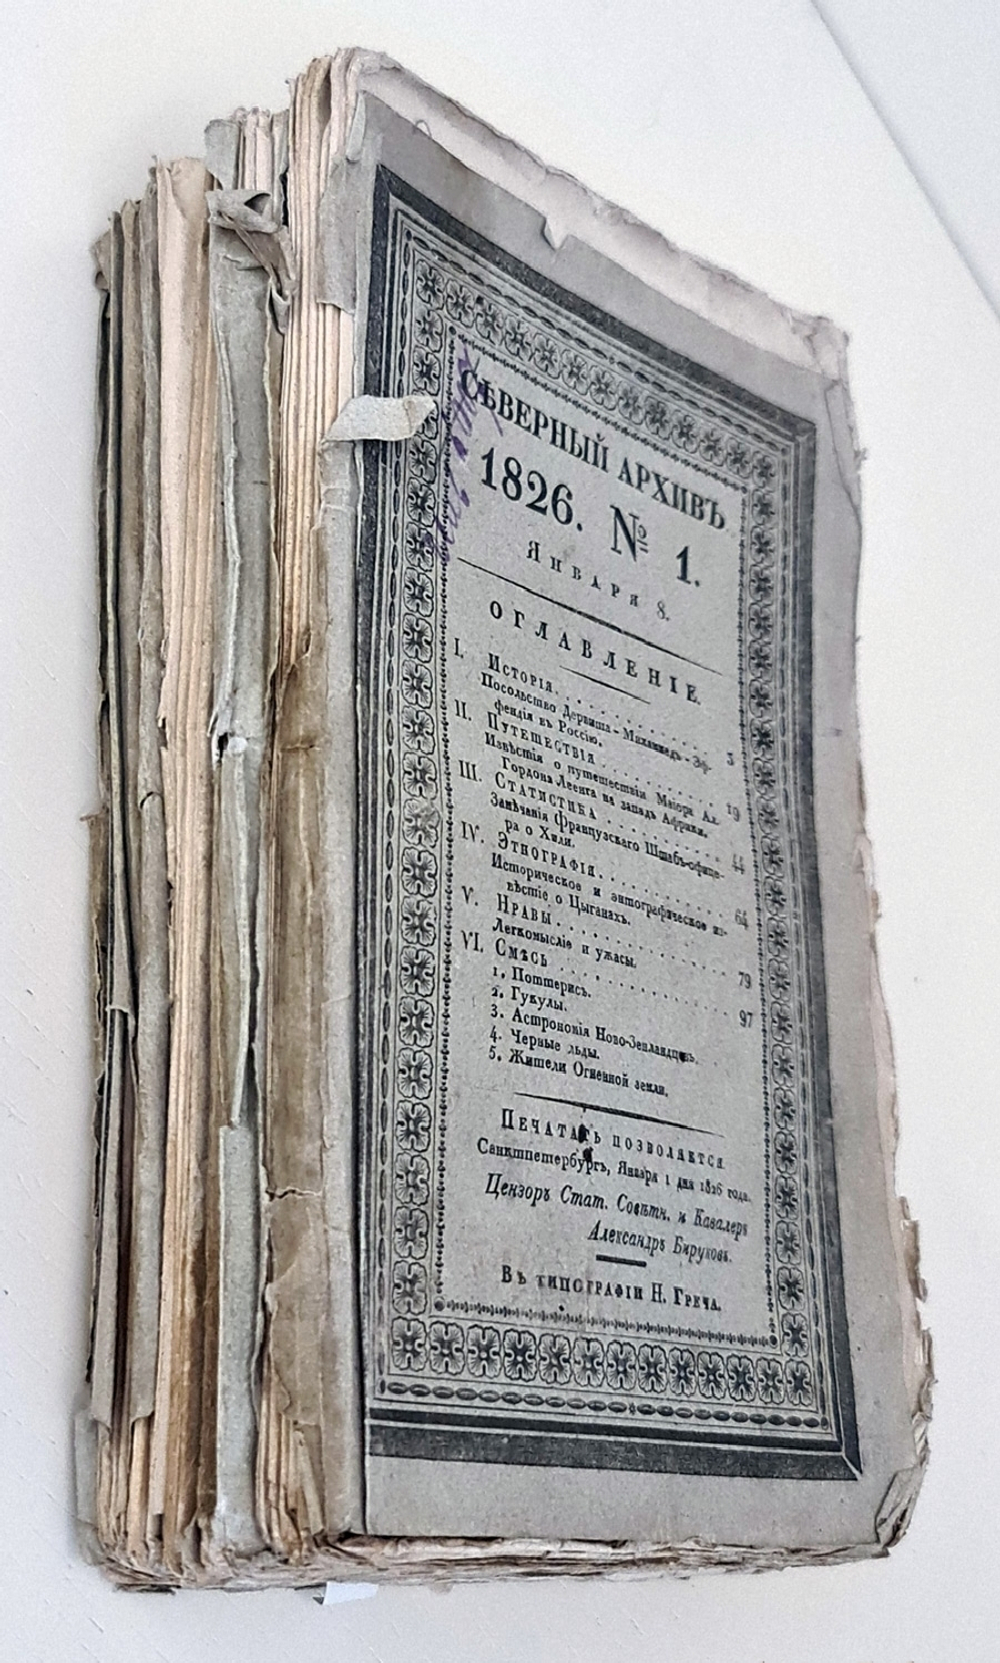 СѢВЕРНЫЙ АРХИВЪ
1826. № 1.
Января 8.
ОГЛАВЛЕНІЕ.
I. Исторія. . . . . . . . . . . . 3
Посольство Дервиша-Махаммедъ-Эф-
фендія въ Россію.
II. Путешествія . . . . . . . . . . 19
Извѣстія о путешествіи Маіора Ал.
Гордона Леенга на западъ Африки.
III. Статистика . . . . . . . . . . 44
Замѣчанія Французскаго Штабъ-офице-
ра о Хили.
IV. Этнографія. . . . . . . . . . . 64
Историческое и энтографическое из-
вѣстіе о Цыганахъ.
V. Нравы . . . . . . . . . . . . . 79
Легкомысліе и ужасы.
VI. Смѣсь . . . . . . . . . . . . . 97
1. Поттерисъ.
2. Гукулы.
3. Астрономія Ново-Зенландцевъ.
4. Черные льды.
5. Жители Огненной земли.
Печатать позволяется
Санктпетербургъ, Января 1 дня 1826 года.
Цензоръ Стат. Совѣтн. и Кавалеръ
Александръ Бируковъ.
Въ типографіи Н. Греча.